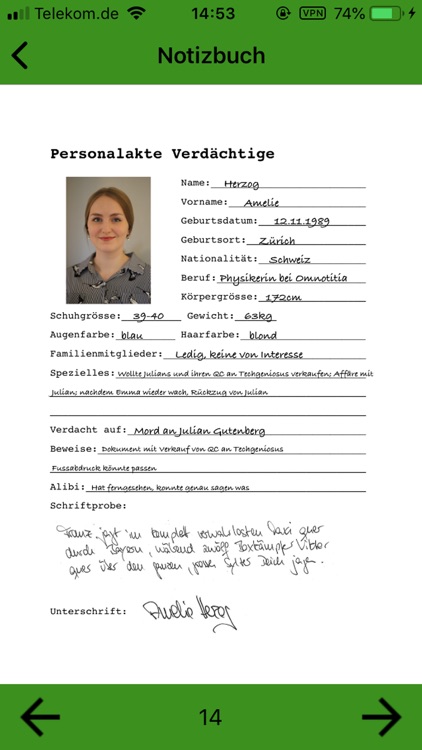 Telekom.de 14:53 VPN 74%
Notizbuch
Personalakte Verdächtige
Name: Herzog
Vorname: Amelie
Geburtsdatum: 12.11.1989
Geburtsort: Zürich
Nationalität: Schweiz
Beruf: Physikerin bei Omnotitia
Körpergrösse: 172cm
Schuhgrösse: 39-40 Gewicht: 63kg
Augenfarbe: blau Haarfarbe: blond
Familienmitglieder: Ledig, keine von Interesse
Spezielles: Wollte Julians und ihren QC an Techgeniosus verkaufen; Affäre mit
Julian; nachdem Emma wieder wach, Rückzug von Julian
Verdacht auf: Mord an Julian Gutenberg
Beweise: Dokument mit Verkauf von QC an Techgeniosus
Fussabdruck könnte passen
Alibi: Hat ferngesehen, konnte genau sagen was
Schriftprobe:
Franz jagt im komplett verwahrlosten Taxi quer
durch Bayern, während zwölf Boxkämpfer Viktor
quer über den grossen Sylter Deich jagen.
Unterschrift: Amelie Herzog
14